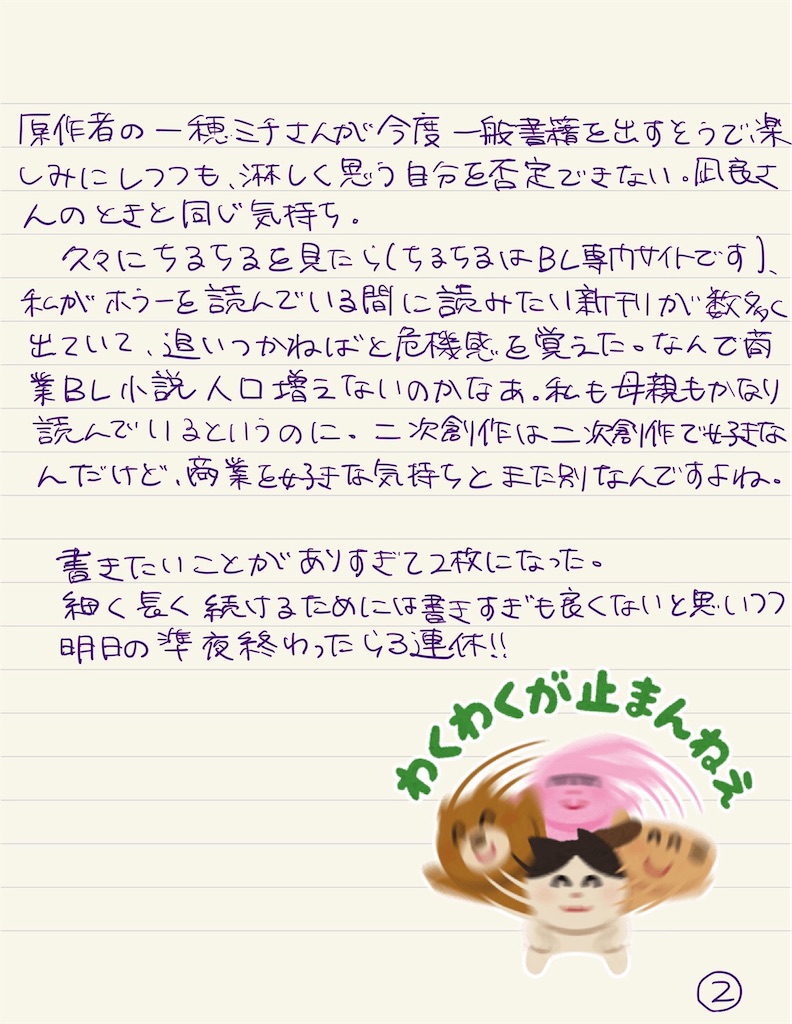 原作者の一穂ミチさんが今度一般書籍を出すそうで、楽
しみにしつつも、淋しく思う自分を否定できない。凪良さ
んのときと同じ気持ち。
久々にちるちるを見たら(ちるちるはBL専門サイトです)、
私がホラーを読んでいる間に読みたい新刊が数多く
出ていて、追いつかねばと危機感を覚えた。なんで商
業BL小説人口増えないのかなあ。私も母親もかなり
読んでいるというのに。二次創作は二次創作で好きな
んだけど、商業を好きな気持ちとまた別なんですよね。
書きたいことがありすぎて2枚になった。
細く長く続けるためには書きすぎも良くないと思いつつ
明日の準夜終わったら3連休!!
わくわくが止まんねえ
2